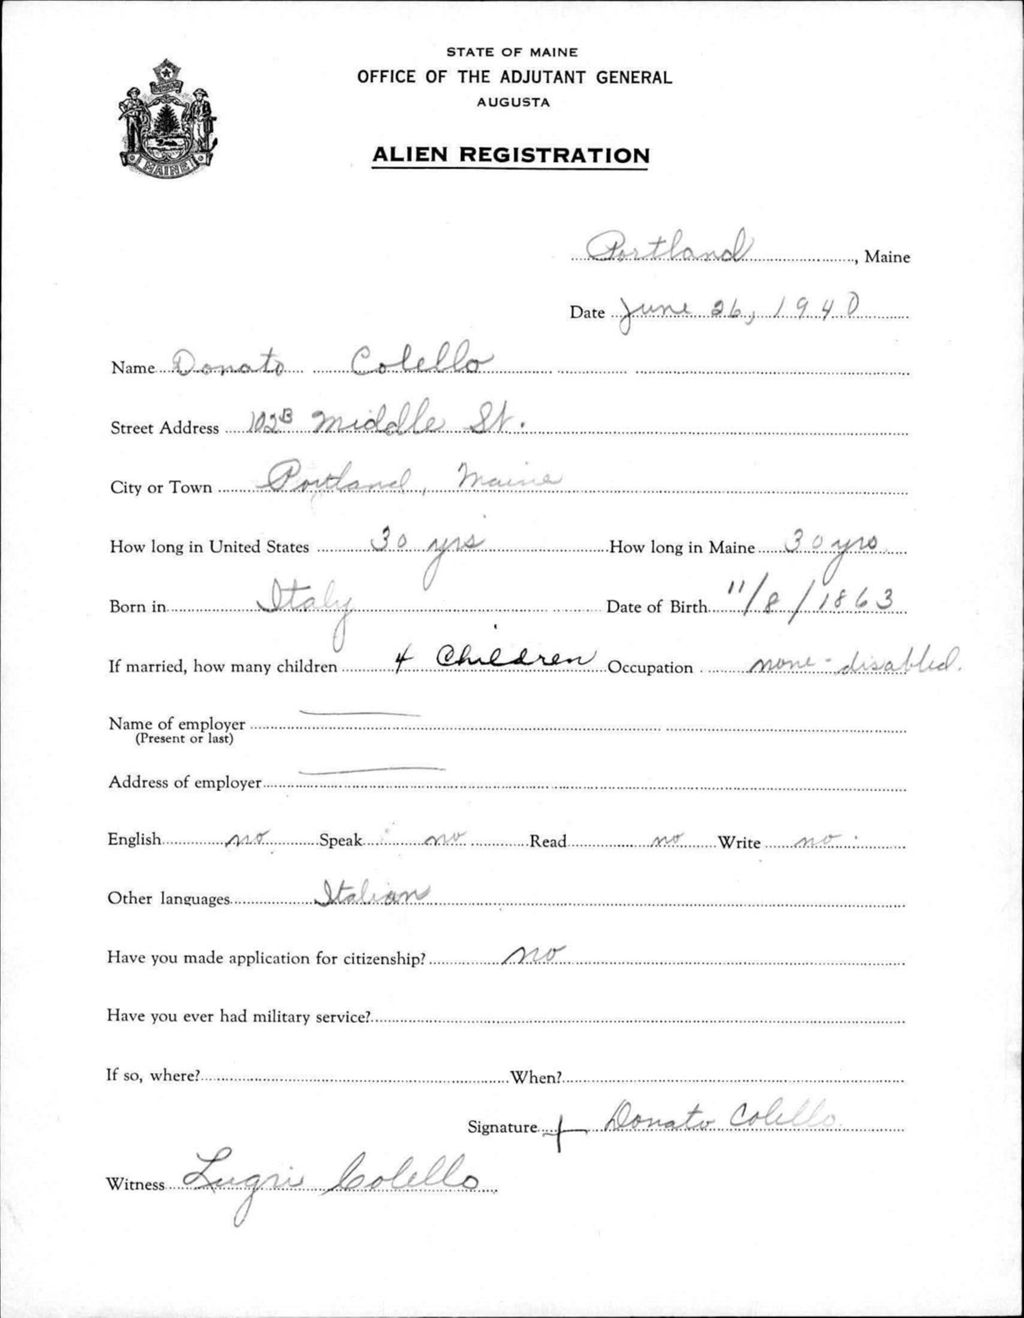 STATE OF MAINE
OFFICE OF THE ADJUTANT GENERAL
AUGUSTA
ALIEN REGISTRATION
MAINE
Portland, Maine
Date June 26, 1940
Name Donato Colello
Street Address 102B Middle St.
City or Town Portland, Maine
How long in United States 30 yrs How long in Maine 30 yrs
Born in Italy Date of Birth 11/8/1863
If married, how many children 4 Children Occupation none - disabled.
Name of employer
(Present or last)
Address of employer
English no Speak no Read no Write no
Other languages Italian
Have you made application for citizenship? no
Have you ever had military service?
If so, where? When?
Signature + Donato Colello
Witness Lugri Colello